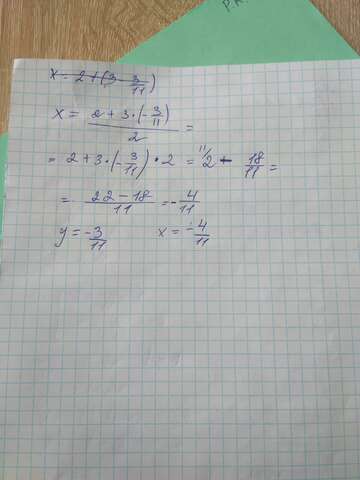 x = 2 + (3 - 3/11)
x = (2 + 3 · (-3/11))/2 =
= 2 + 3 · (-3/11) · 2 = 11/ 2 - 18/11 =
= (22 - 18)/11 = -4/11
y = -3/11 x = -4/11